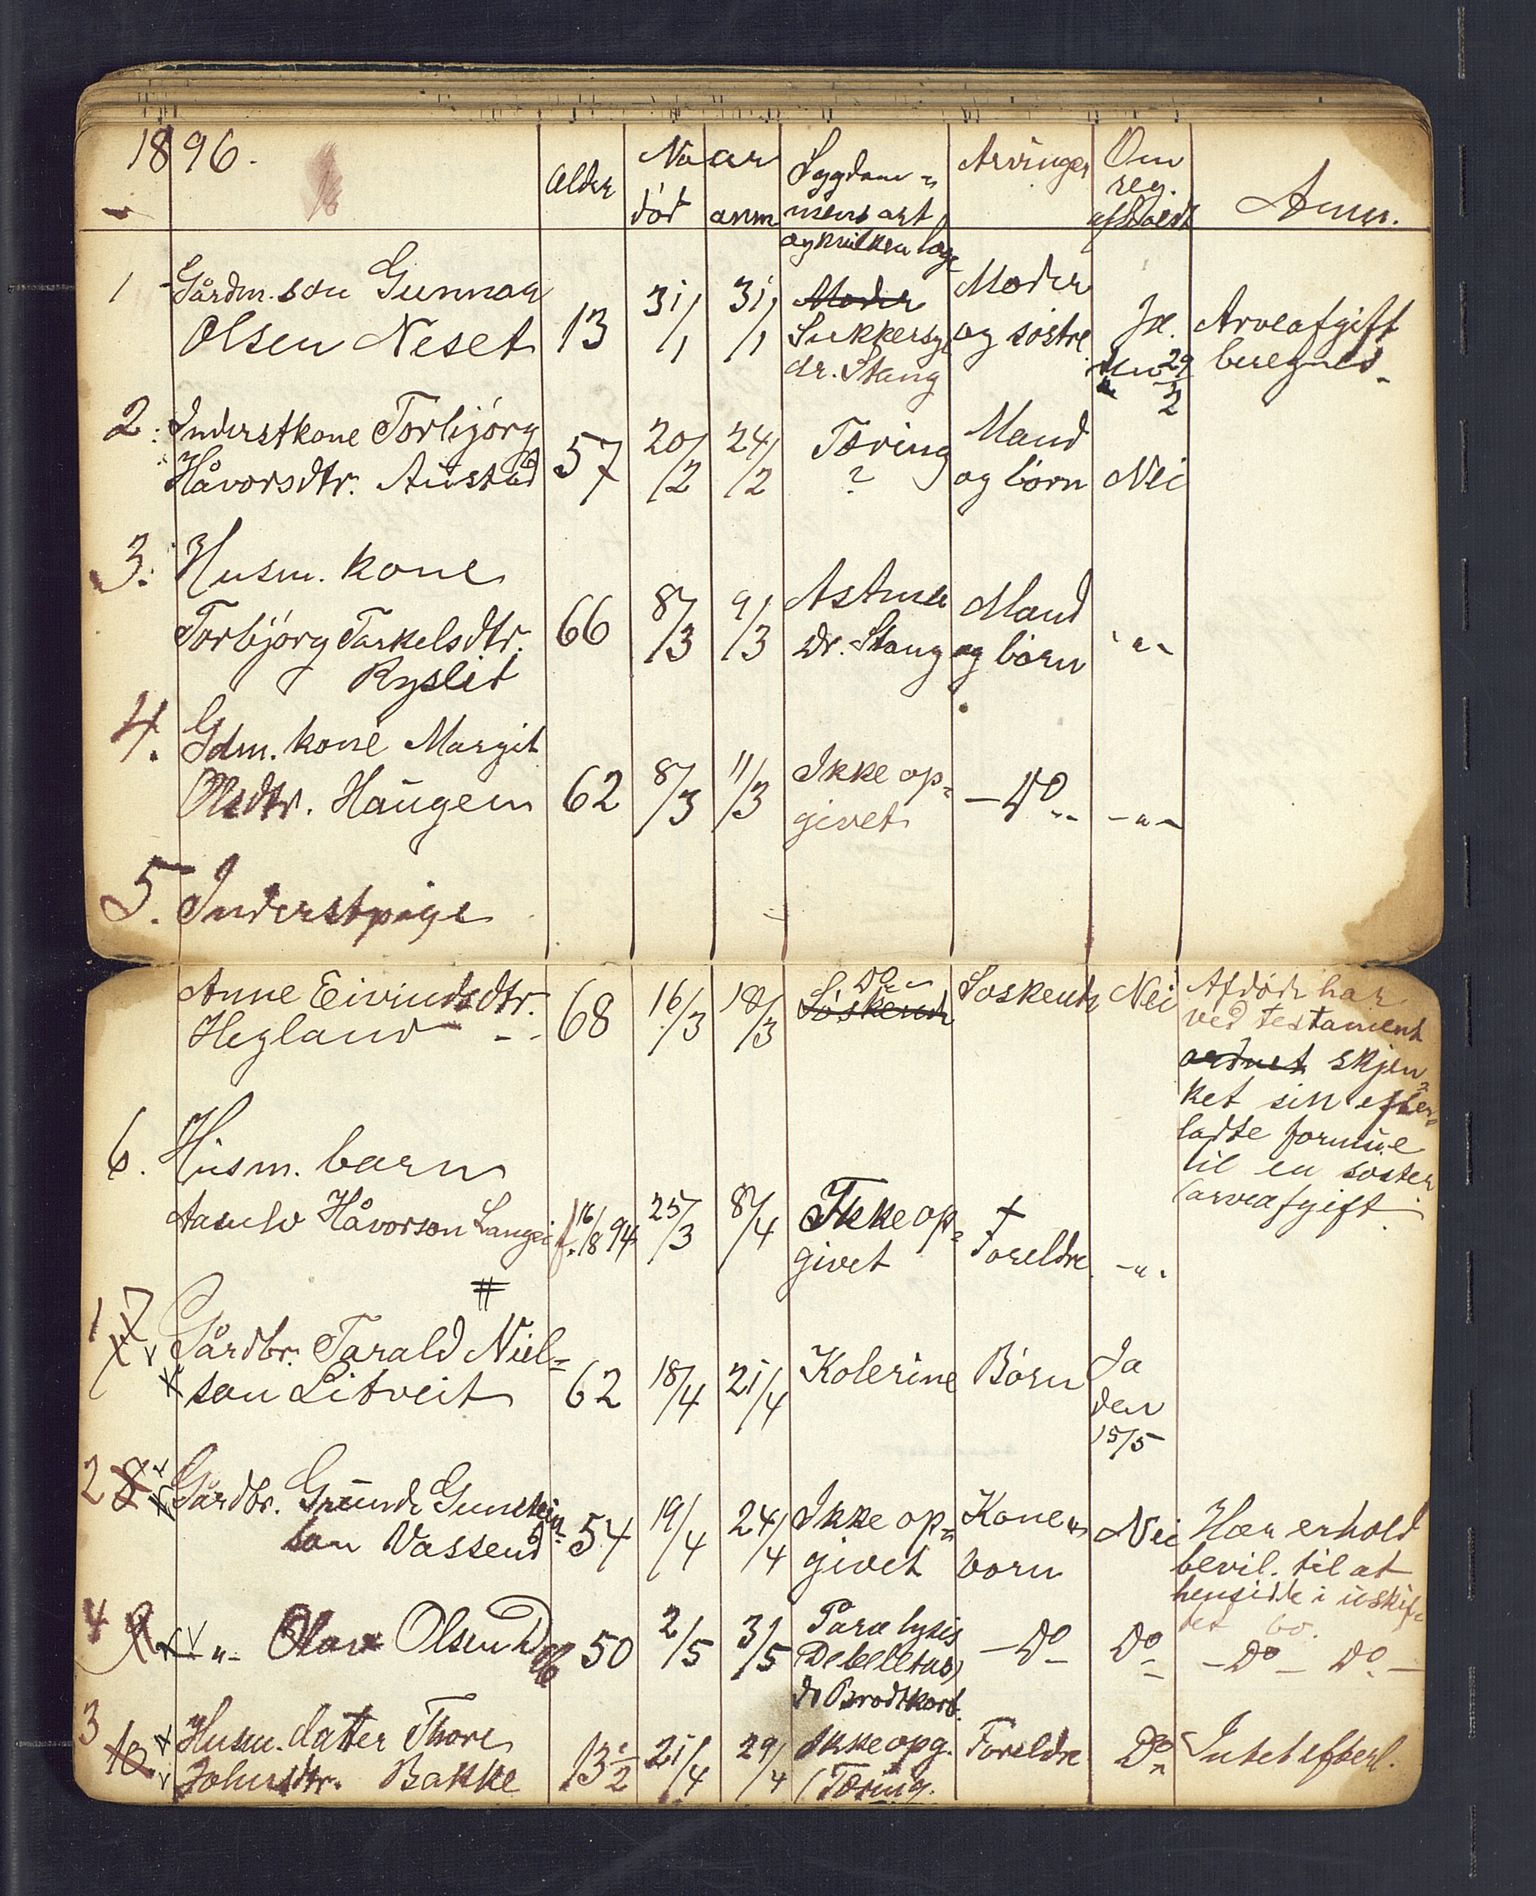 1896.
Alder
Naar
død
anm
Sygdom=
mens art
og hvilken læge
Arvinger
Om
reg.
afholdt
Anm.
1 Gårdm. søn Gunnar
Olsen Neset
13
31/1
31/1
Moder
Sukkersyge
dr. Stang
Moder
og søstre
Ja.
den 29/2
Arveafgift
beregnes
2. Inderstkone Torbjørg
Håvorsdtr. Austad
57
20/2
24/2
Tæring
?
Mand
og børn
Nei
3. Husm. kone
Torbjørg Tarkelsdtr.
Ryslit
66
8/3
9/3
Astma
Dr. Stang
Mand
og børn
-"-
4. Gdm. kone Margit
Olsdtr. Haugen
62
8/3
11/3
Ikke op=
givet
- Do -
-"-
5. Inderstpige
Anne Eivindsdtr.
Hegland
68
16/3
18/3
Do -
Søskende
Søskende
Nei
Afdøde har
ved testament
ordnet skjen=
ket sin efter=
ladte formue
til en søster
(arveafgift.
6. Husm. barn
Aasulv Håvorson Langei
f. 16/8 94
25/3
8/4
Ikke op=
givet
+
Foreldre
-"-
1 7 Gårdbr. Tarald Niel=
son Litveit
62
18/4
21/4
Kolerine
Børn
Ja
den
15/5
2 8 Gårdbr. Grunde Gunstein=
son Vassend
54
19/4
24/4
Ikke op=
givet
Kone
børn
Nei
Har erhold
bevil. til at
hensidde i uskif=
tet bo.
4 9 -"- Olav Olsen
50
2/5
3/5
Paralysis
Do Brodtkorb.
- Do -
Do -
- Do - Do -
3 10. Husm. datter Thore
Johnsdtr. Bakke
13 1/2
21/4
29/4
Ikke opg.
(Tæring.
Foreldre
Do
Intet efterl.